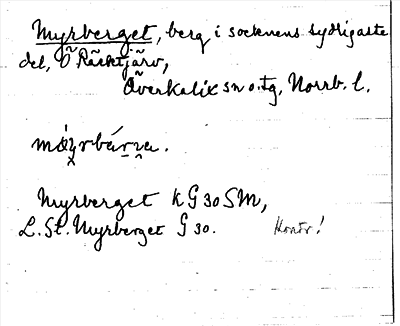 Myrberget, berg i socknens sydligaste
del, Ö Räcktjärv,
Överkalix sn o. tg, Norrb. l.
Myrberget KG30SM,
L. St. Myrberget G 30. Kontr!